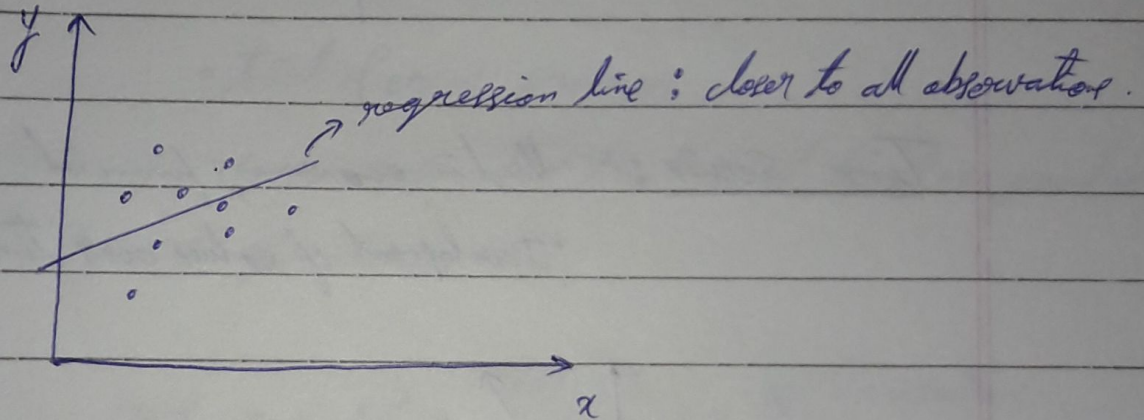 y
regression line : closer to all observations.
x